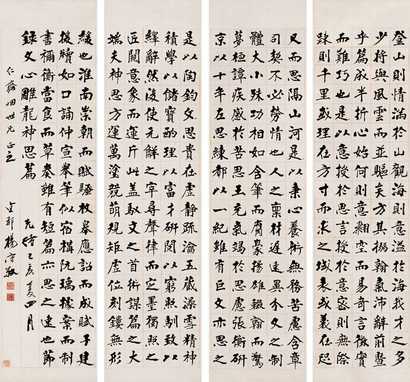 登山則情滿於山觀海則意溢於海我才之
多少將與風雲而並驅矣方其搦翰氣倍辭前暨
乎篇成半折心始何則意翻空而易奇言徵實
而難巧也是以意授於思言授於意密則無際
疎則千里或理在方寸而求之域表或義在咫
尺而思隔山河是以秉心養術無務苦慮含章
司契不必勞情也人之稟才遲速異分文之制
體大小殊功相如含筆而腐毫揚雄輟翰而驚
夢桓譚疾感於苦思王充氣竭於思慮張衡研
京以十年左思練都以一紀雖有巨文亦思之
是以陶鈞文思貴在虛靜疏瀹五藏澡雪精神
積學以儲寶酌理以富才研閱以窮照馴致以
繹辭然後使元解之宰尋聲律而定墨獨照之
匠闚意象而運斤此蓋馭文之首術謀篇之大
端夫神思方運萬塗競萌規矩虛位刻鏤無形
緩也淮南崇朝而賦騷枚皋應詔而成賦子建
援牘如口誦仲宣舉筆似宿構阮瑀據案而制
書禰衡當食而草奏雖有短篇亦思之速也
錄文心雕龍神思篇 光緒乙亥夏四月
仁齋四世兄正之 宜都楊守敬